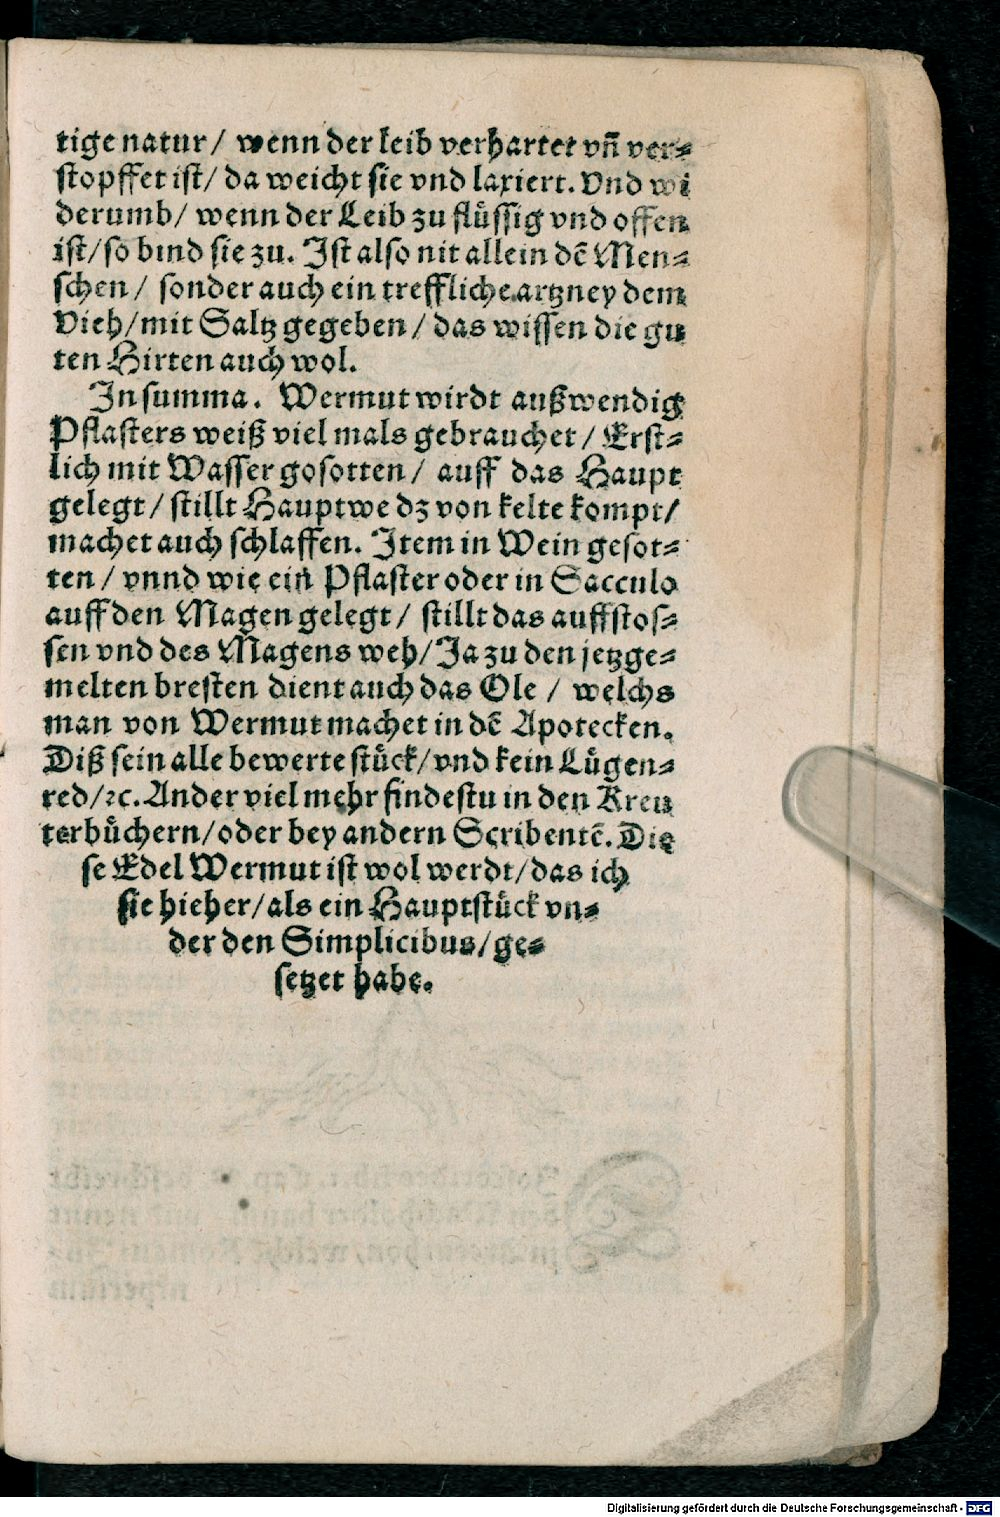 tige natur / wenn der leib verhartet vñ ver-
stopffet ist / da weicht sie vnd laxiert. Vnd wi
derumb / wenn der Leib zu flüssig vnd offen
ist / so bind sie zu. Ist also nit allein dẽ Men-
schen / sonder auch ein treffliche artzney dem
Vieh / mit Saltz gegeben / das wissen die gu
ten Hirten auch wol.
In summa. Wermut wirdt außwendig
Pflasters weiß viel mals gebrauchet / Erst-
lich mit Wasser gosotten / auff das Haupt
gelegt / stillt Hauptwe dz von kelte kompt /
machet auch schlaffen. Item in Wein gesot-
ten / vnnd wie ein Pflaster oder in Sacculo
auff den Magen gelegt / stillt das auffstos-
sen vnd des Magens weh / Ja zu den jetzge-
melten bresten dient auch das Ole / welchs
man von Wermut machet in dẽ Apotecken.
Diß sein alle bewerte stück / vnd kein Lügen-
red / ꝛc. Ander viel mehr findestu in den Kreu
terbüchern / oder bey andern Scribentẽ. Die
se Edel Wermut ist wol werdt / das ich
sie hieher / als ein Hauptstück vn-
der den Simplicibus / ge-
setzet habe.
Digitalisierung gefördert durch die Deutsche Forschungsgemeinschaft - DFG